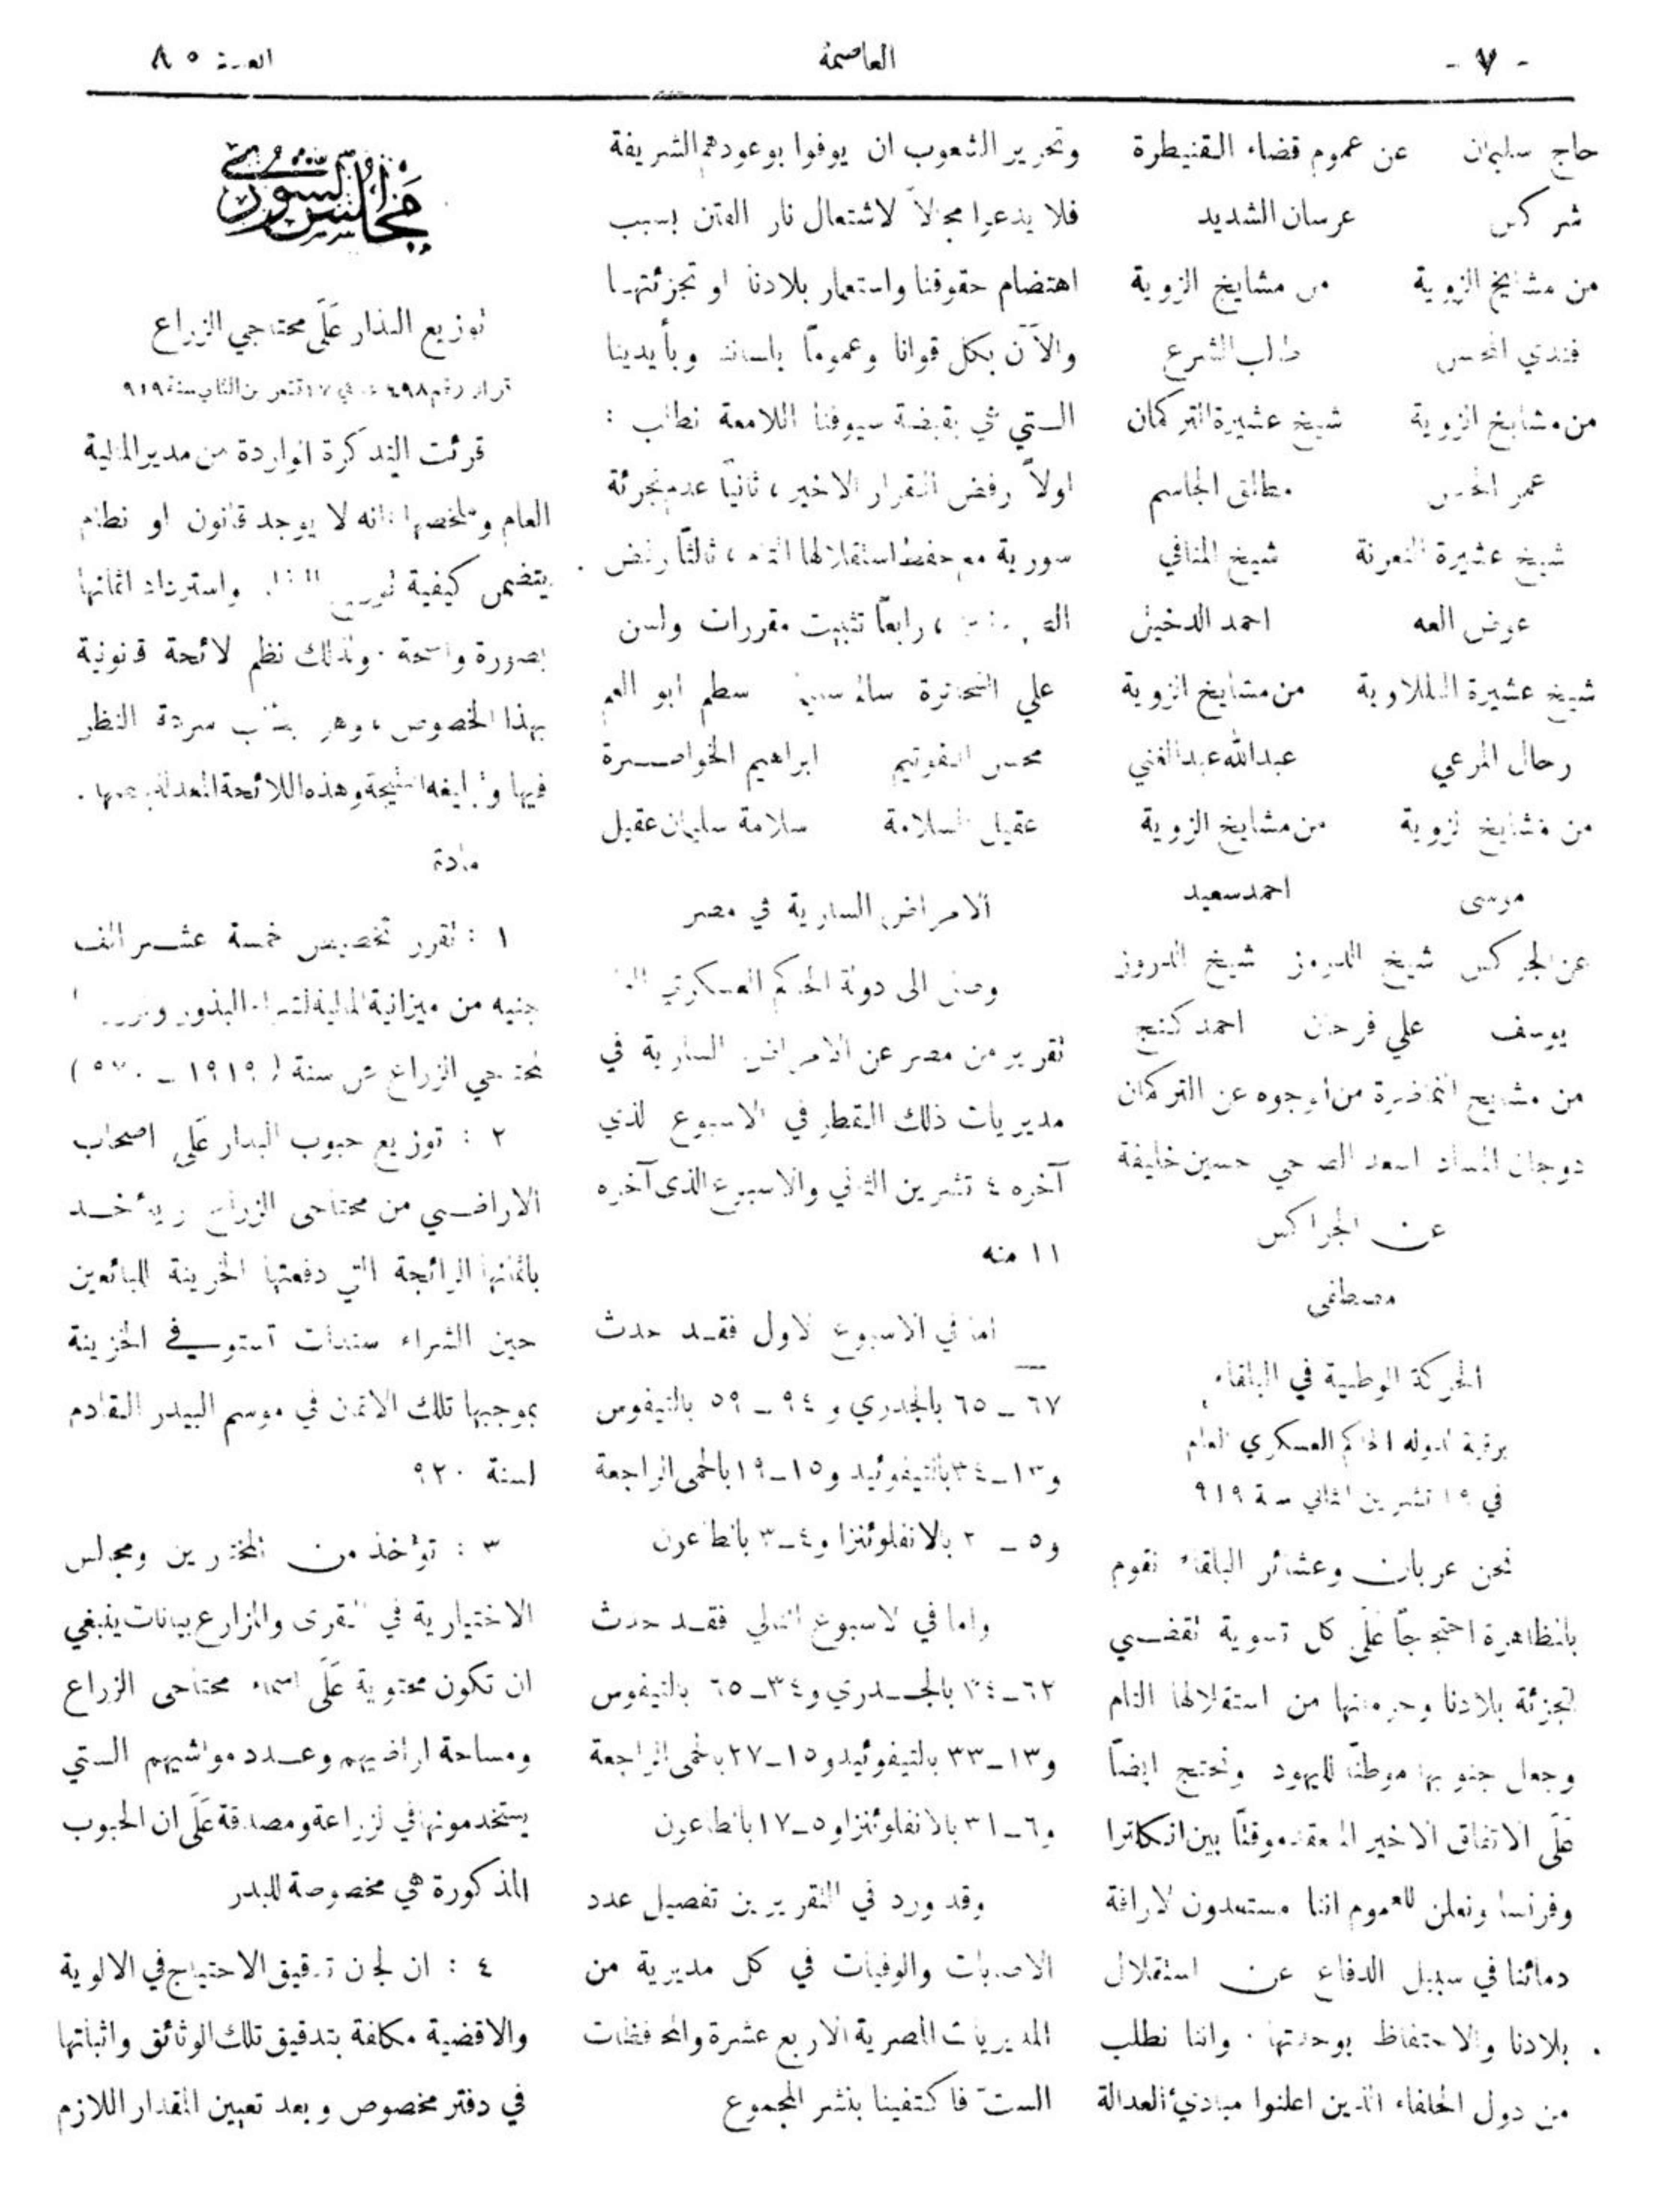 - ٧ -
العاصمة
العدد ٨٥
حاج سليمان عن عموم قضاء القنيطرة
شركس عرسان الشديد
من مشايخ الزوية من مشايخ الزوية
فندي المحسن طالب الشرع
من مشايخ الزوية شيخ عشيرة التركمان
عمر الحسن مطلق الجاسم
شيخ عشيرة النعرنة شيخ المنافي
عوض العه احمد الدخيل
شيخ عشيرة التللاوية من مشايخ الزوية
رحال المرعي عبدالله عبدالغني
من مشايخ لزوية من مشايخ الزوية
موسى احمد سعيد
عن الجركس شيخ الدروز شيخ الدروز
يوسف علي فرحان احمد كنج
من مشايخ من اوجوه عن التركمان
دوجان اسعد حسين خليفة
عن الجراكس
مصطفى
الحركة الوطنية في البلقاء
برقية لدولة الحاكم العسكري العام
في ١٩ تشرين الثاني سنة ٩١٩
نحن عربان وعشائر البلقاء نقوم
بالمظاهرة احتجاجاً على كل تسوية تقضي
لتجزئة بلادنا وحرمانها من استقلالها التام
وجعل جنوبها موطناً لليهود ونحتج ايضاً
على الاتفاق الاخير المعقد موقتاً بين انكلترا
وفرنسا ونعلن للعموم اننا مستعدون لاراقة
دمائنا في سبيل الدفاع عن استقلال
بلادنا والاحتفاظ بوحدتها . واننا نطلب
من دول الحلفاء الذين اعلنوا مبادئ العدالة
وتحرير الشعوب ان يوفوا بوعودهم الشريفة
فلا يدعوا مجالاً لاشتعال نار الفتن بسبب
اهتضام حقوقنا واستعمار بلادنا او تجزئتها
والآن بكل قوانا وعموماً بالسنتنا وبأيدينا
التي هي بقبضة سيوفنا اللامعة نطالب :
اولاً رفض القرار الاخير ، ثانياً عدم تجزئة
سورية مع حفظ استقلالها التام ، ثالثاً رفض
، رابعاً تثبيت مقررات ولسن
علي سطم ابو
محسن ابراهيم الخواصرة
عقيل السلامة سلامة سليمان عقيل
الامراض السارية في مصر
وصل الى دولة الحاكم العسكري العام
تقرير من مصر عن الامراض السارية في
مديريات ذلك القطر في الاسبوع لذي
آخره ٤ تشرين الثاني والاسبوع الذى آخره
١١ منه
اما في الاسبوع لاول فقد حدث
٦٧ ــ ٦٥ بالجدري و ٩٤ ــ ٥٩ بالتيفوس
و١٣ــ٣٤ بالتيفوئيد و١٥ــ١٩ بالحمى الراجعة
و٥ ــ ٢ بالانفلوئنزا و٤ــ٣ بالطاعون
واما في لاسبوع التالي فقد حدث
٦٢ــ٣٤ بالجدري و٣٤ــ٦٥ بالتيفوس
و١٣ــ٣٣ بالتيفوئيد و١٥ــ٢٧ بالحمى الراجعة
و٦ــ٣١ بالانفلوئنزا و٥ــ١٧ بالطاعون
وقد ورد في التقريرين تفصيل عدد
الاصابات والوفيات في كل مديرية من
المديريات المصرية الاربع عشرة والمحافظات
الست فاكتفينا بنشر المجموع
مجلس الشورى
توزيع البذار على محتاجي الزراع
قرار رقم ٤٩٨ في ١٧ تشرين الثاني سنة ٩١٩
قرئت التذكرة الواردة من مدير المالية
العام وملخصها انه لا يوجد قانون او نظام
يتضمن كيفية توزيع واسترداد اثمانها
بصورة واضحة . ولذلك نظم لائحة قانونية
بهذا الخصوص ، وهو يطلب سرعة النظر
فيها وتبليغه النتيجة وهذه اللائحة المعدلة
مادة
١ : تقرر تخصيص خمسة عشر الف
جنيه من ميزانية المالية لشراء البذور
لمحتاجي الزراع عن سنة (١٩١٩ ــ )
٢ : توزيع حبوب البذار على اصحاب
الاراضي من محتاجى الزراع ويؤخذ
باثمانها الرائجة التي دفعتها الخزينة للبائعين
حين الشراء سندات تستوفي الخزينة
بموجبها تلك الاثمان في موسم البيدر القادم
لسنة ٩٢٠
٣ : تؤخذ من المختارين ومجالس
الاختيارية في القرى والمزارع بيانات ينبغي
ان تكون محتوية على اسماء محتاجى الزراع
ومساحة اراضيهم وعدد مواشيهم التي
يستخدمونها في لزراعة ومصدقة على ان الحبوب
المذكورة هي مخصوصة للبذر
٤ : ان لجان تدقيق الاحتياج في الالوية
والاقضية مكلفة بتدقيق تلك الوثائق واثباتها
في دفتر مخصوص وبعد تعيين المقدار اللازم